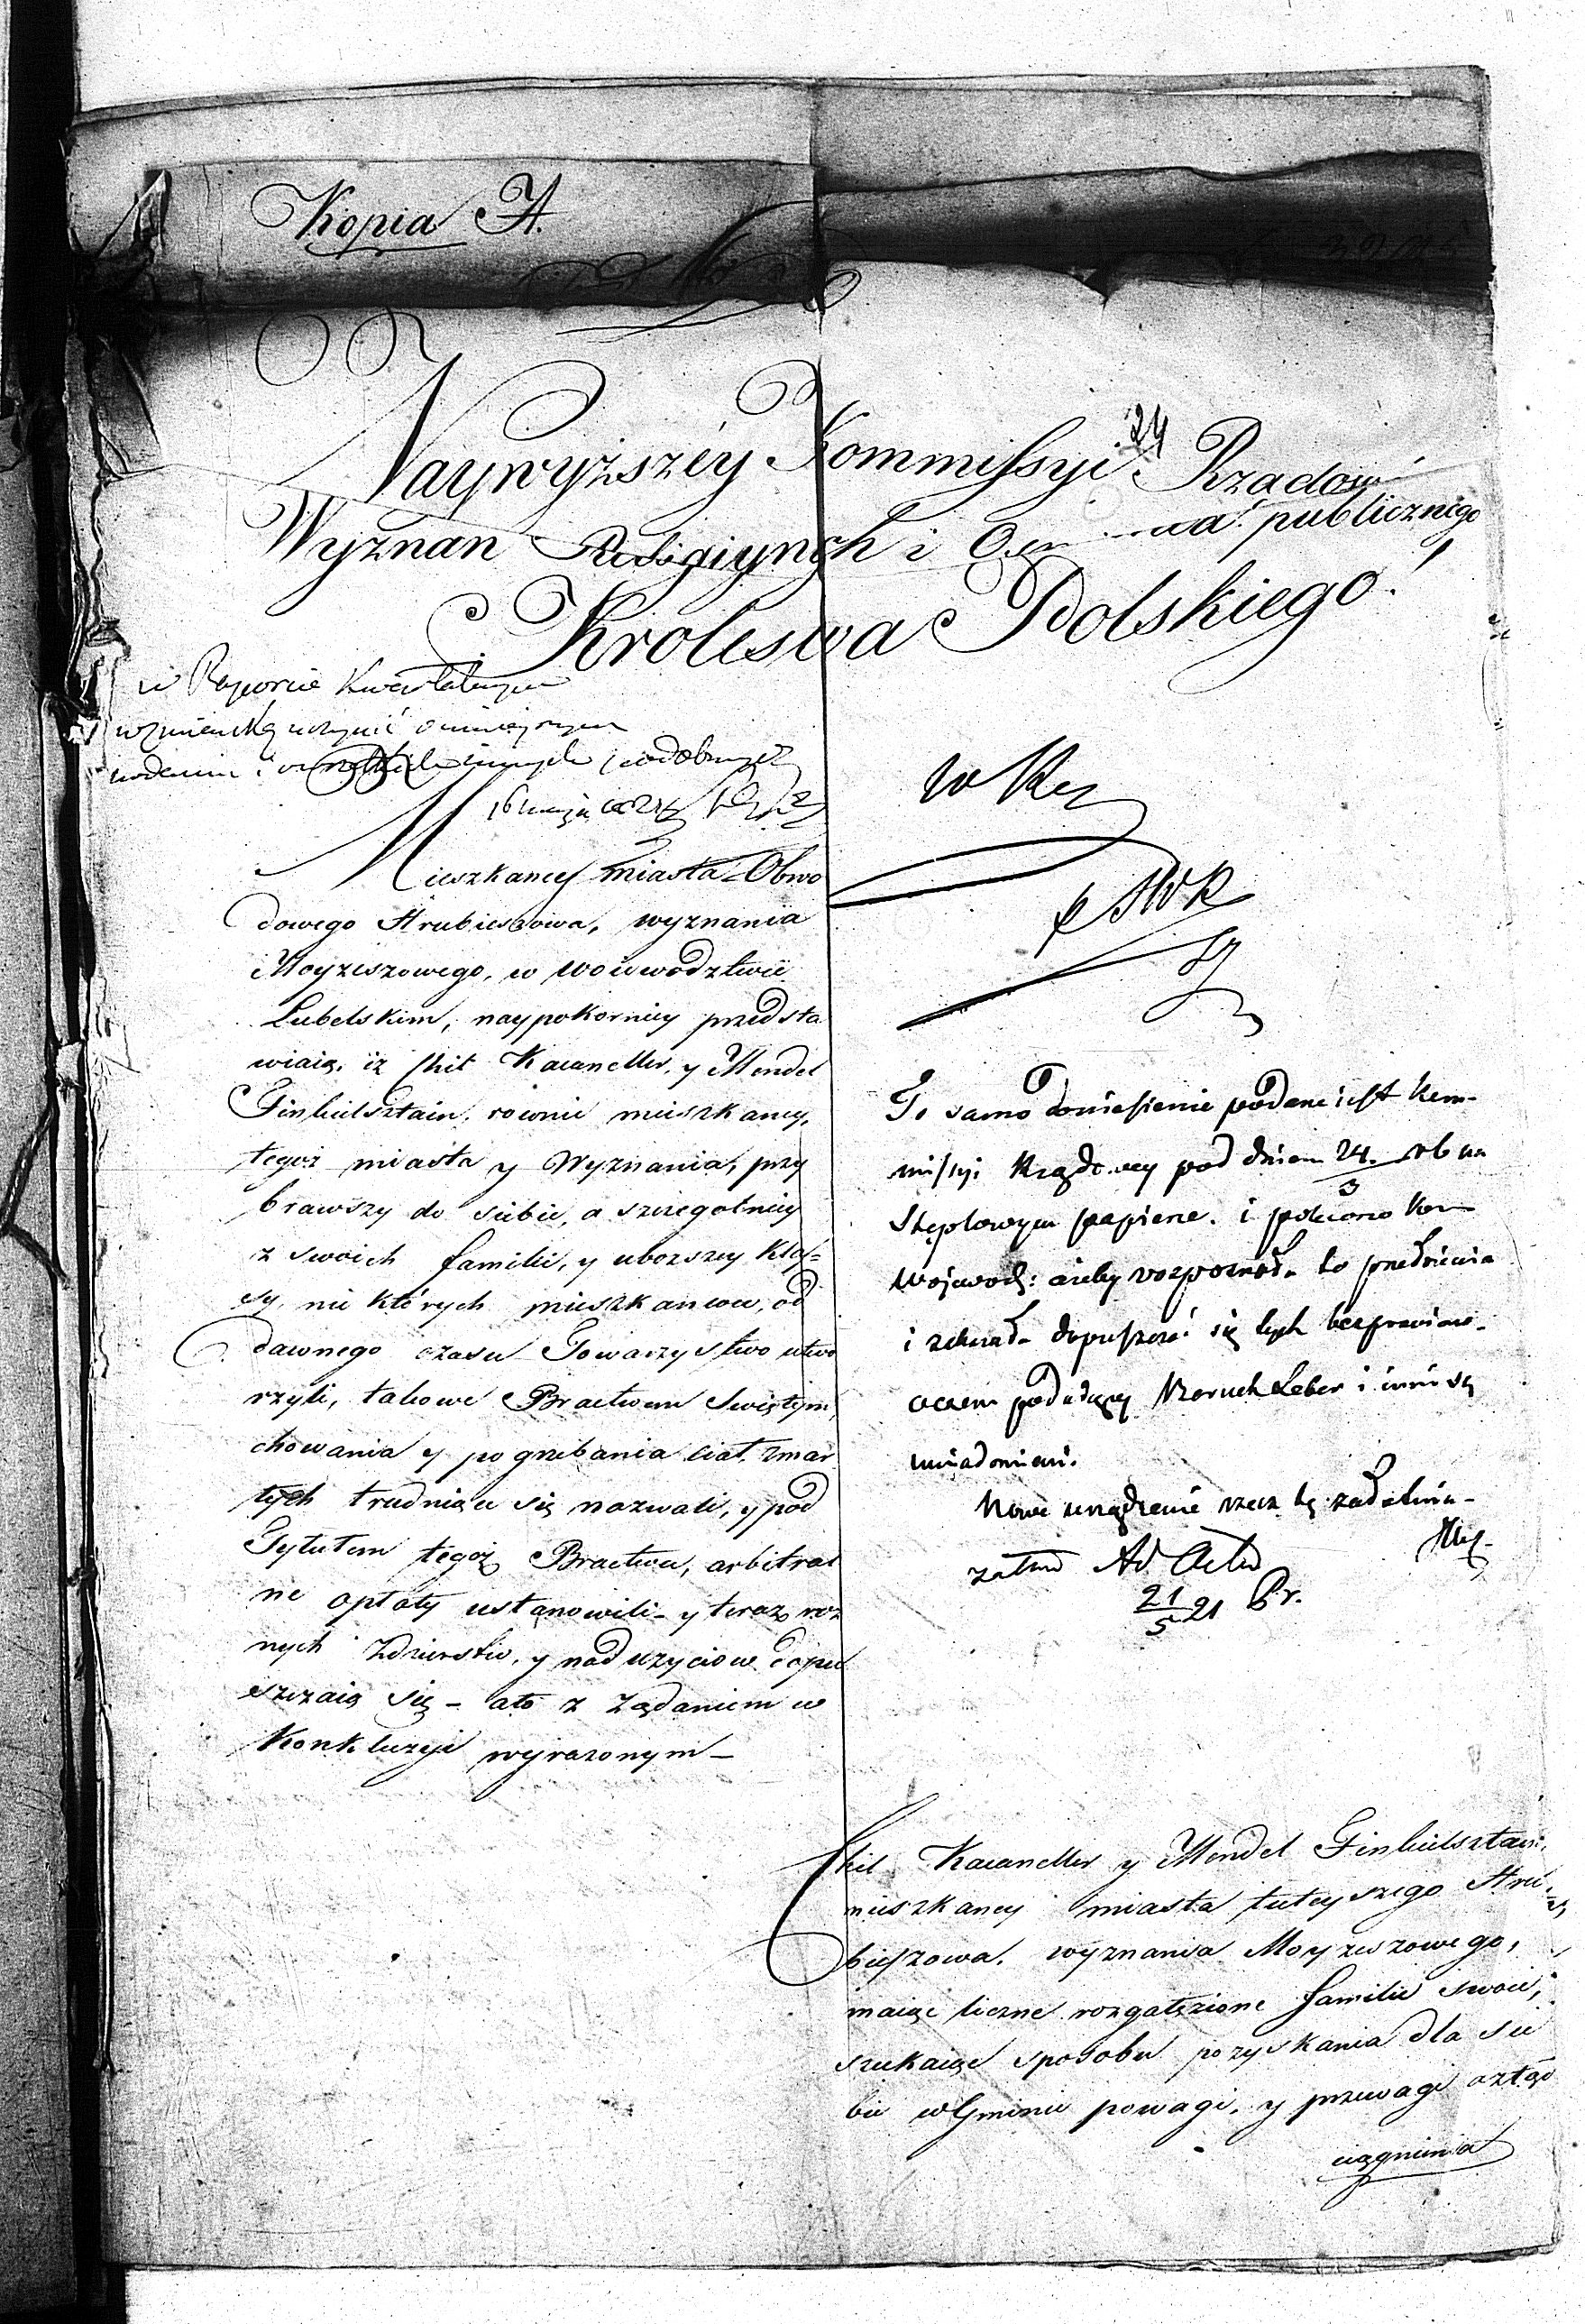 Kopia A.
24
Naywyższéy Kommissyi Rządow
Wyznan Religiynych i publicznego
Krolestwa Polskiego!
w Raporcie Kwartalnym
wzmiankę uczynić o ninieyszym
podobnych
16 maja
Mieszkancy miasta Obwo
dowego Hrubieszowa, wyznania
Moyzeszowego, w woiewodztwie
Lubelskim, naypokorniey przedsta
wiaią, iż Hil Kacaneller, y Mendel
Finkielsztain, rownie mieszkancy,
tegoż miasta y Wyznania, przy
brawszy do siebie, a szczegolniey
z swoich familii, y uborszey klas=
sy, nie których mieszkancow, od
dawnego czasu Towarzystwo utwo
rzyli, takowe Bractwem Swiętym,
chowania y pogrzebania ciał, zmar
łych trudniące się nazwali, y pod
Tytułem tegoż Bractwa, arbitral
ne opłaty ustanowili - y teraz roz
nych zdzierstw, y nad uzyciow dopu
szczaią się - ato z żądaniem w
Konkluzyi wyrazonym -
W Rz
To samo doniesienie podane iest Kom-
missyi Rządowey pod dniem 24/3 rb na
Stęplowym papierze. i polecono Kom
Wojewodz: ażeby rozpoznała to
i zakazała dopuszczać się tych bezprawiow-
oczem podaiący Leber i inni są
uwiadomieni.
Nowe urządzenie rzecz tę załatwia-
zatem Ad Acta
21/5 21 Br.
Hil Kacaneller y Mendel Finkielsztain,
mieszkancy miasta tuteyszego Hru
bieszowa, wyznania Moyzeszowego,
maiąc liczne rozgałęzione familie swoie,
szukaiąc sposobu pozyskania dla sie
bie w Gminie powagi, y przewagi a ztąd
ciągnienia